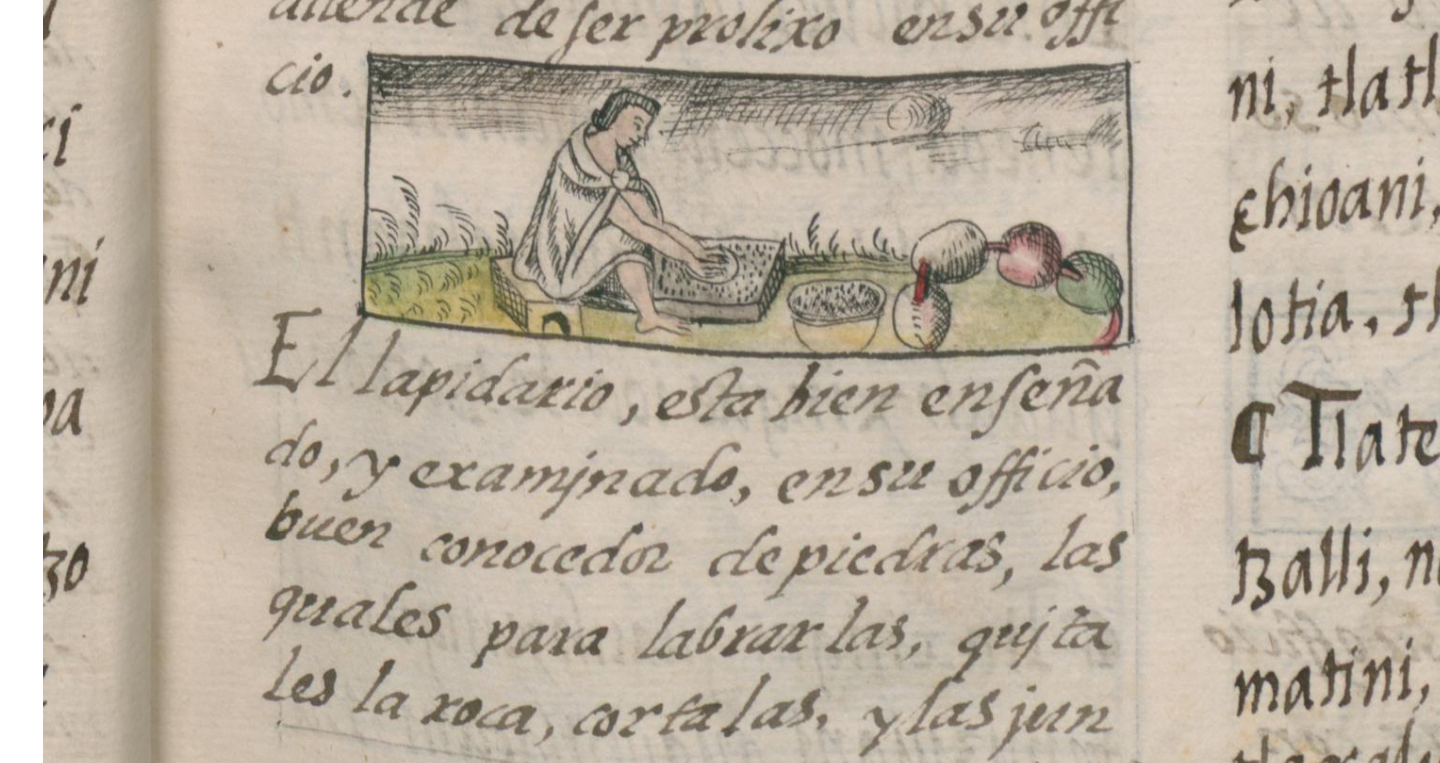 attende de ser prolixo en su offi
cio.
El lapidario, esta bien enseña
do, y examjnado, en su officio,
buen conocedor de piedras, las
quales para labrar las, qujta
les la roca, corta las, y las jun
ni, tlatl
chioani,
lotia, tl
¶ Tlate
tzalli, n
matini,